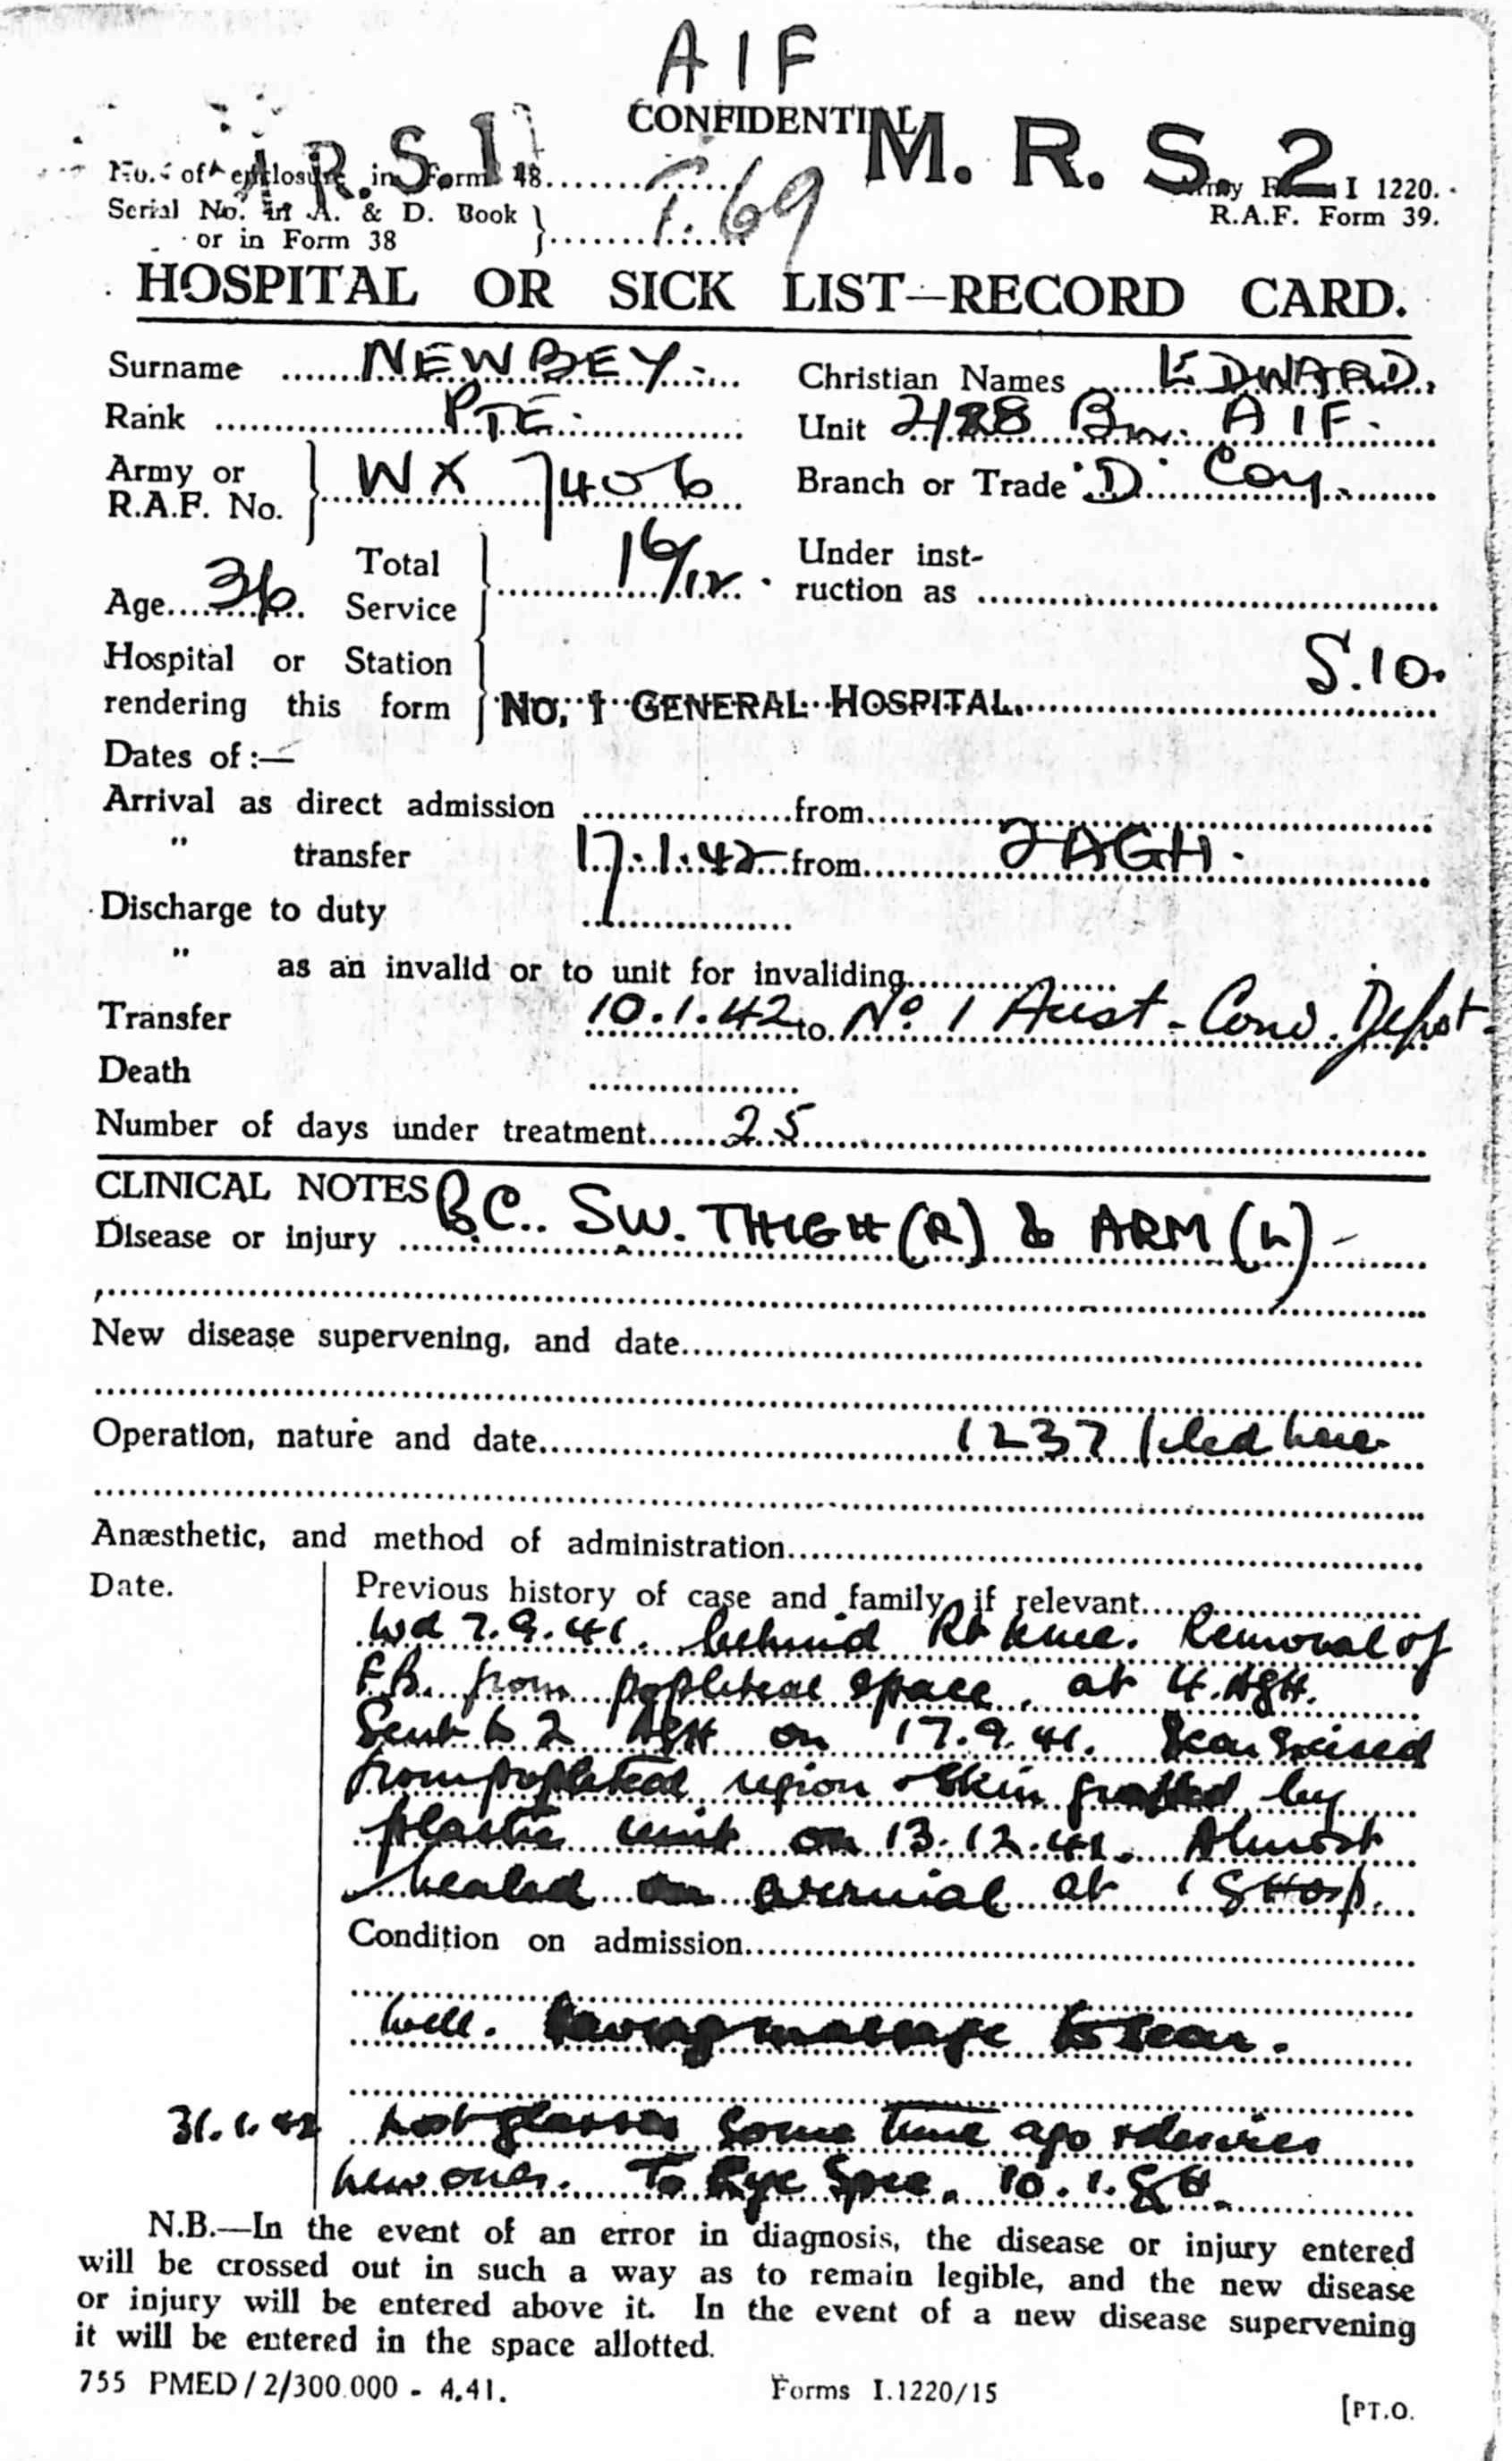 AIF
CONFIDENTIAL
M. R. S. 2
No. of enclosure in Form 48
Army Form I 1220.
Serial No. in A. & D. Book
or in Form 38
T.69
R.A.F. Form 39.
HOSPITAL OR SICK LIST—RECORD CARD.
Surname NEWBEY. Christian Names EDWARD.
Rank PTE. Unit 2/28 Bn. AIF.
Army or R.A.F. No. WX 7406 Branch or Trade 'D' Coy.
Age 36 Total Service 16/12. Under instruction as
Hospital or Station S.10.
rendering this form No. 1 GENERAL HOSPITAL.
Dates of :—
Arrival as direct admission from
" transfer 17.1.42 from 2AGH.
Discharge to duty
" as an invalid or to unit for invaliding
Transfer 10.1.42 to No. 1 Aust. Conv. Depot.
Death
Number of days under treatment 25
CLINICAL NOTES
Disease or injury BC.. SW. THIGH (R) & ARM (L) -
New disease supervening, and date
Operation, nature and date 1237 here
Anæsthetic, and method of administration
Date. Previous history of case and family, if relevant
Wd 7.9.41. behind Rt knee. Removal of
F.B. from popliteal space, at 4.AGH.
Sent to 2 AGH on 17.9.41. Scar excised
from popliteal region & skin grafted by
plastic unit on 13.12.41. Almost
healed on arrival at 1 GHosp.
Condition on admission
Well. Having massage to scar.
31.1.42 Lost glasses some time ago & desires
new ones. To Eye Spec. 10.1.GH.
N.B.—In the event of an error in diagnosis, the disease or injury entered
will be crossed out in such a way as to remain legible, and the new disease
or injury will be entered above it. In the event of a new disease supervening
it will be entered in the space allotted.
755 PMED / 2/300.000 - 4.41. Forms I.1220/15
[PT.O.